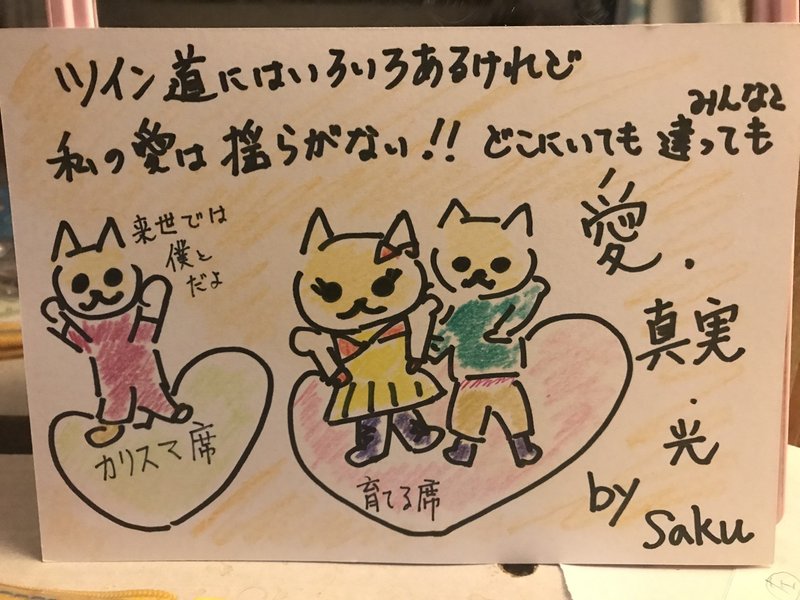 ツイン道にはいろいろあるけれど
私の愛は揺らがない!! どこにいても みんなと違っても
来世では
僕と
だよ
愛・
真実
・光
カリスマ席
育てる席
by
saku